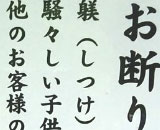 お断り
躾（しつけ）
騒々しい子供
他のお客様の